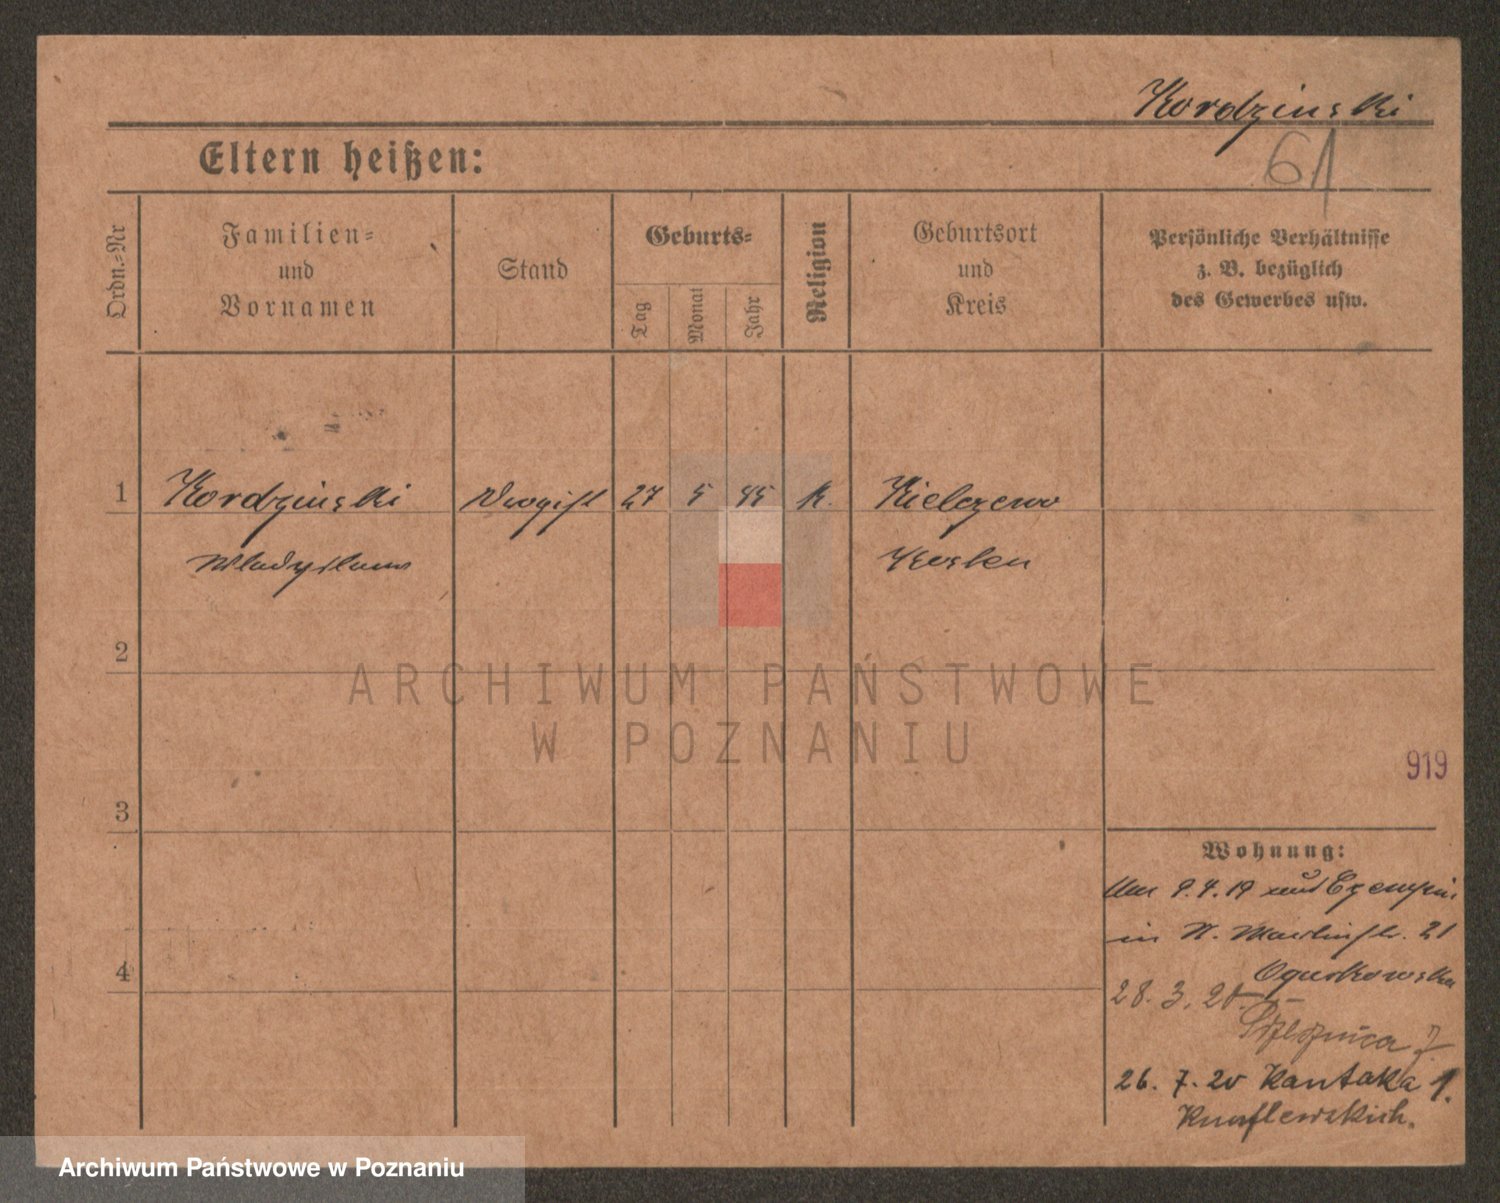 Kordzinski
61
Eltern heißen:
Ordn.-Nr
Familien-
und
Vornamen
Stand
Geburts-
Tag
Monat
Jahr
Religion
Geburtsort
und
Kreis
Persönliche Verhältnisse
z. B. bezüglich
des Gewerbes usw.
1 Kordzinski Drogist 27 5 95 K. Kielczewo
Wladyslaus Kosten
2
ARCHIWUM PAŃSTWOWE
W POZNANIU
919
3
Wohnung:
9.4.19 Czempin
in St. Martinstr. 21
4
Ogurkowska
28. 3. 20
26. 7. 20 Kantaka 1.
Knaflewskich.
Archiwum Państwowe w Poznaniu